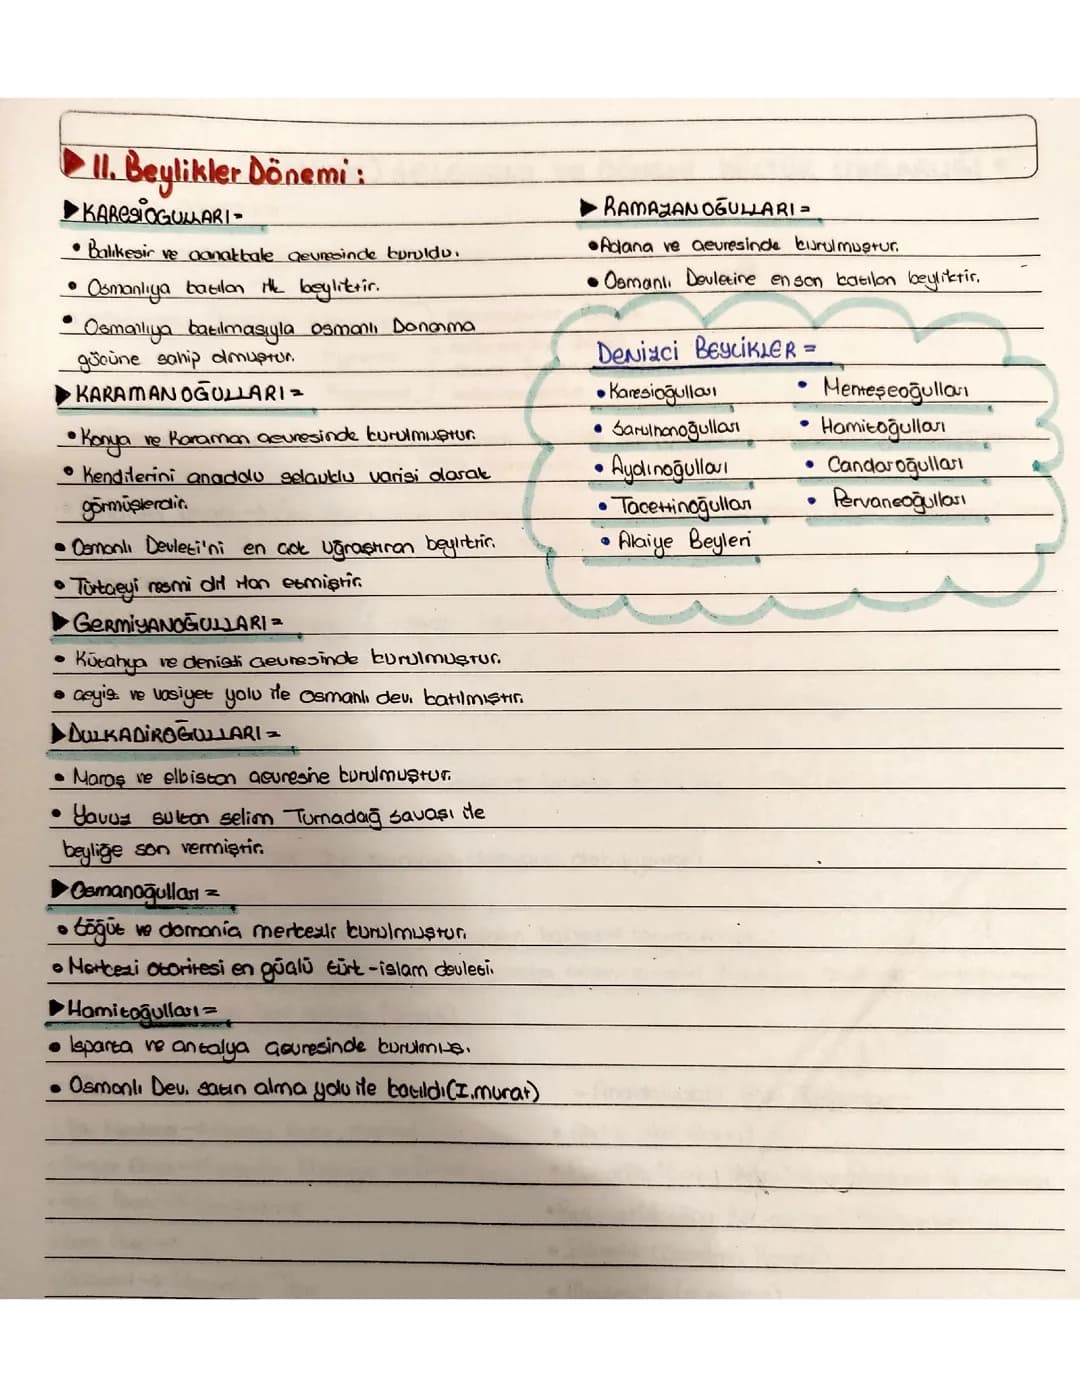 ▶ II. Beylikler Dönemi :
▶ KARESİOĞULLARI -
• Balıkesir ve çanakkale çevresinde kuruldu.
• Osmanlıya katılan ilk beyliktir.
• Osmanlıya katılmasıyla osmanlı Donanma
gücüne sahip olmuştur.
▶ KARAMANOĞULLARI =
• Konya ve Karaman çevresinde kurulmuştur.
• Kendilerini anadolu selçuklu varisi olarak
görmüşlerdir.
• Osmanlı Devleti'ni en çok uğraştıran beyliktir.
• Türkçeyi resmi dil ilan etmiştir.
▶ GERMİYANOĞULLARI =
• Kütahya ve denizli çevresinde kurulmuştur.
• çeyiz ve vasiyet yolu ile Osmanlı dev. katılmıştır.
▶ DULKADİROĞULLARI =
• Maraş ve elbistan çevresine kurulmuştur.
• Yavuz sultan selim Turnadağ savaşı ile
beyliğe son vermiştir.
▶ Osmanoğulları =
• Söğüt ve domaniç merkezlr kurulmuştur.
• Merkezi otoritesi en güçlü türk-islam devleti.
▶ Hamitoğulları =
• Isparta ve antalya çevresinde kurulmuş.
• Osmanlı Dev. satın alma yolu ile katıldı(I.murat)
▶ RAMAZANOĞULLARI =
• Adana ve çevresinde kurulmuştur.
• Osmanlı Devletine en son katılan beyliktir.
DENİZCİ BEYLİKLER =
• Karesioğulları
• Saruhanoğulları
• Aydınoğulları
• Tacettinoğulları
• Alaiye Beyleri
• Menteşeoğulları
• Hamitoğulları
• Candaroğulları
• Pervaneoğulları